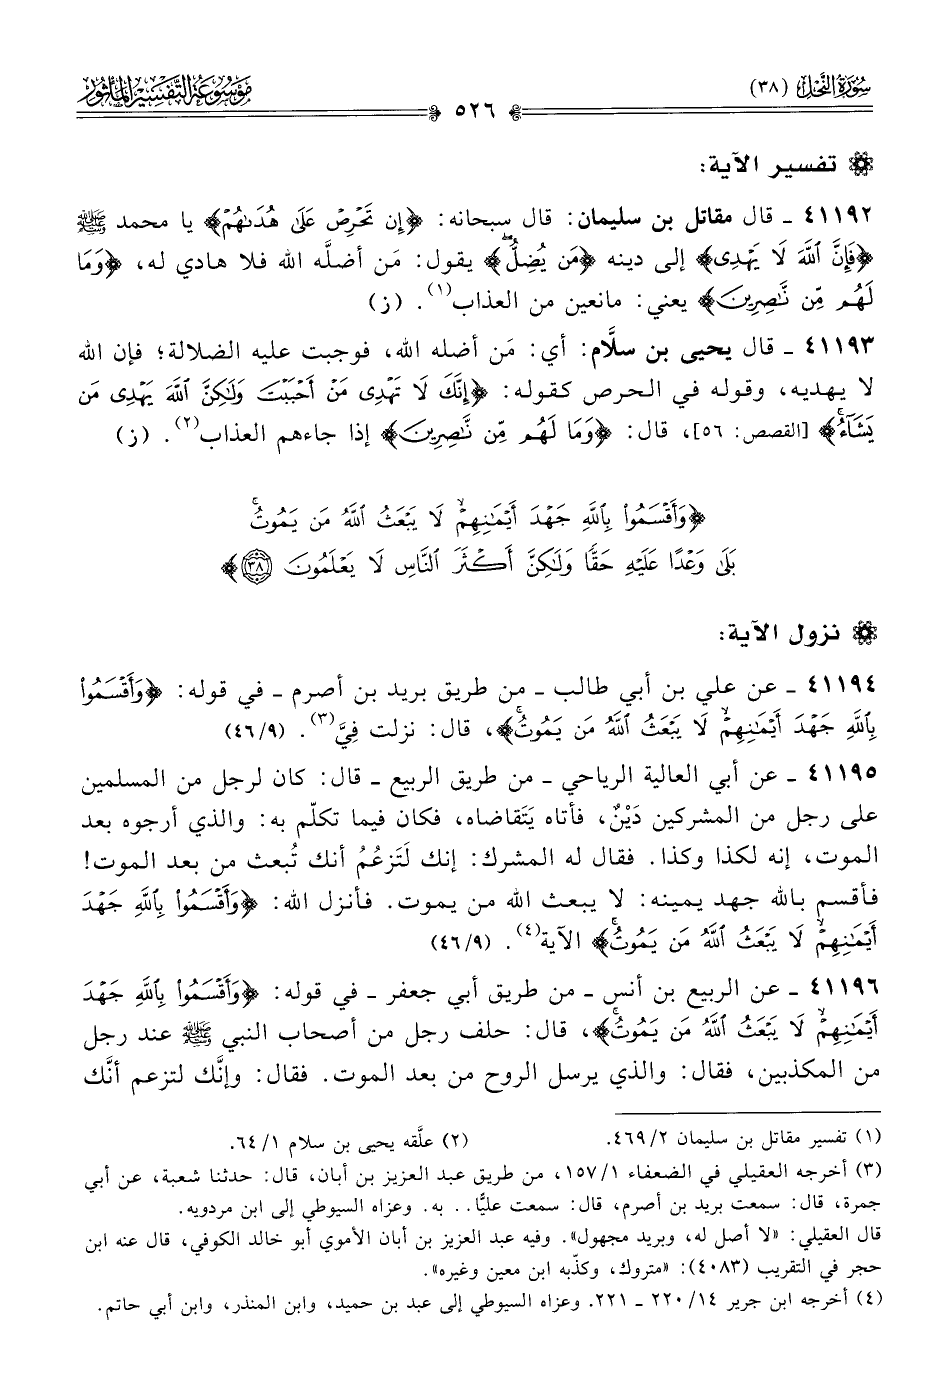 سُورَةُ النَّحْل (٣٨)
مَوْسُوعَة التَّفْسِير المَأْثُور
٥٢٦
تفسير الآية:
٤١١٩٢ ـ قال مقاتل بن سليمان: قال سبحانه: ﴿إِن تَحْرِصْ عَلَىٰ هُدَىٰهُمْ﴾ يا محمد ﷺ
﴿فَإِنَّ ٱللَّهَ لَا يَهْدِى﴾ إلى دينه ﴿مَن يُضِلُّ﴾ يقول: مَن أضلَّه الله فلا هادي له، ﴿وَمَا
لَهُم مِّن نَّـٰصِرِينَ﴾ يعني: مانعين من العذاب(١). (ز)
٤١١٩٣ ـ قال يحيى بن سلَّام: أي: مَن أضله الله، فوجبت عليه الضلالة؛ فإن الله
لا يهديه، وقوله في الحرص كقوله: ﴿إِنَّكَ لَا تَهْدِى مَنْ أَحْبَبْتَ وَلَـٰكِنَّ ٱللَّهَ يَهْدِى مَن
يَشَآءُ﴾ [القصص: ٥٦]، قال: ﴿وَمَا لَهُم مِّن نَّـٰصِرِينَ﴾ إذا جاءهم العذاب(٢). (ز)
﴿وَأَقْسَمُوا۟ بِٱللَّهِ جَهْدَ أَيْمَـٰنِهِمْ ۙ لَا يَبْعَثُ ٱللَّهُ مَن يَمُوتُ ۚ
بَلَىٰ وَعْدًا عَلَيْهِ حَقًّا وَلَـٰكِنَّ أَكْثَرَ ٱلنَّاسِ لَا يَعْلَمُونَ ٣٨﴾
نزول الآية:
٤١١٩٤ ـ عن علي بن أبي طالب ـ من طريق بريد بن أصرم ـ في قوله: ﴿وَأَقْسَمُوا۟
بِٱللَّهِ جَهْدَ أَيْمَـٰنِهِمْ ۙ لَا يَبْعَثُ ٱللَّهُ مَن يَمُوتُ ۚ﴾، قال: نزلت فِيَّ(٣). (٤٦/٩)
٤١١٩٥ ـ عن أبي العالية الرياحي ـ من طريق الربيع ـ قال: كان لرجل من المسلمين
على رجل من المشركين دَيْنٌ، فأتاه يَتَقاضاه، فكان فيما تكلّم به: والذي أرجوه بعد
الموت، إنه لكذا وكذا. فقال له المشرك: إنك لَتَزعُمُ أنك تُبعث من بعد الموت!
فأقسم بالله جهد يمينه: لا يبعث الله من يموت. فأنزل الله: ﴿وَأَقْسَمُوا۟ بِٱللَّهِ جَهْدَ
أَيْمَـٰنِهِمْ ۙ لَا يَبْعَثُ ٱللَّهُ مَن يَمُوتُ ۚ﴾ الآية(٤). (٤٦/٩)
٤١١٩٦ ـ عن الربيع بن أنس ـ من طريق أبي جعفر ـ في قوله: ﴿وَأَقْسَمُوا۟ بِٱللَّهِ جَهْدَ
أَيْمَـٰنِهِمْ ۙ لَا يَبْعَثُ ٱللَّهُ مَن يَمُوتُ ۚ﴾، قال: حلف رجل من أصحاب النبي ﷺ عند رجل
من المكذبين، فقال: والذي يرسل الروح من بعد الموت. فقال: وإنَّك لتزعم أنَّك
(١) تفسير مقاتل بن سليمان ٤٦٩/٢. (٢) علَّقه يحيى بن سلام ٦٤/١.
(٣) أخرجه العقيلي في الضعفاء ١٥٧/١، من طريق عبد العزيز بن أبان، قال: حدثنا شعبة، عن أبي
جمرة، قال: سمعت بريد بن أصرم، قال: سمعت عليًّا.. به. وعزاه السيوطي إلى ابن مردويه.
قال العقيلي: «لا أصل له، وبريد مجهول». وفيه عبد العزيز بن أبان الأموي أبو خالد الكوفي، قال عنه ابن
حجر في التقريب (٤٠٨٣): «متروك، وكذّبه ابن معين وغيره».
(٤) أخرجه ابن جرير ١٤/ ٢٢٠ ـ ٢٢١. وعزاه السيوطي إلى عبد بن حميد، وابن المنذر، وابن أبي حاتم.